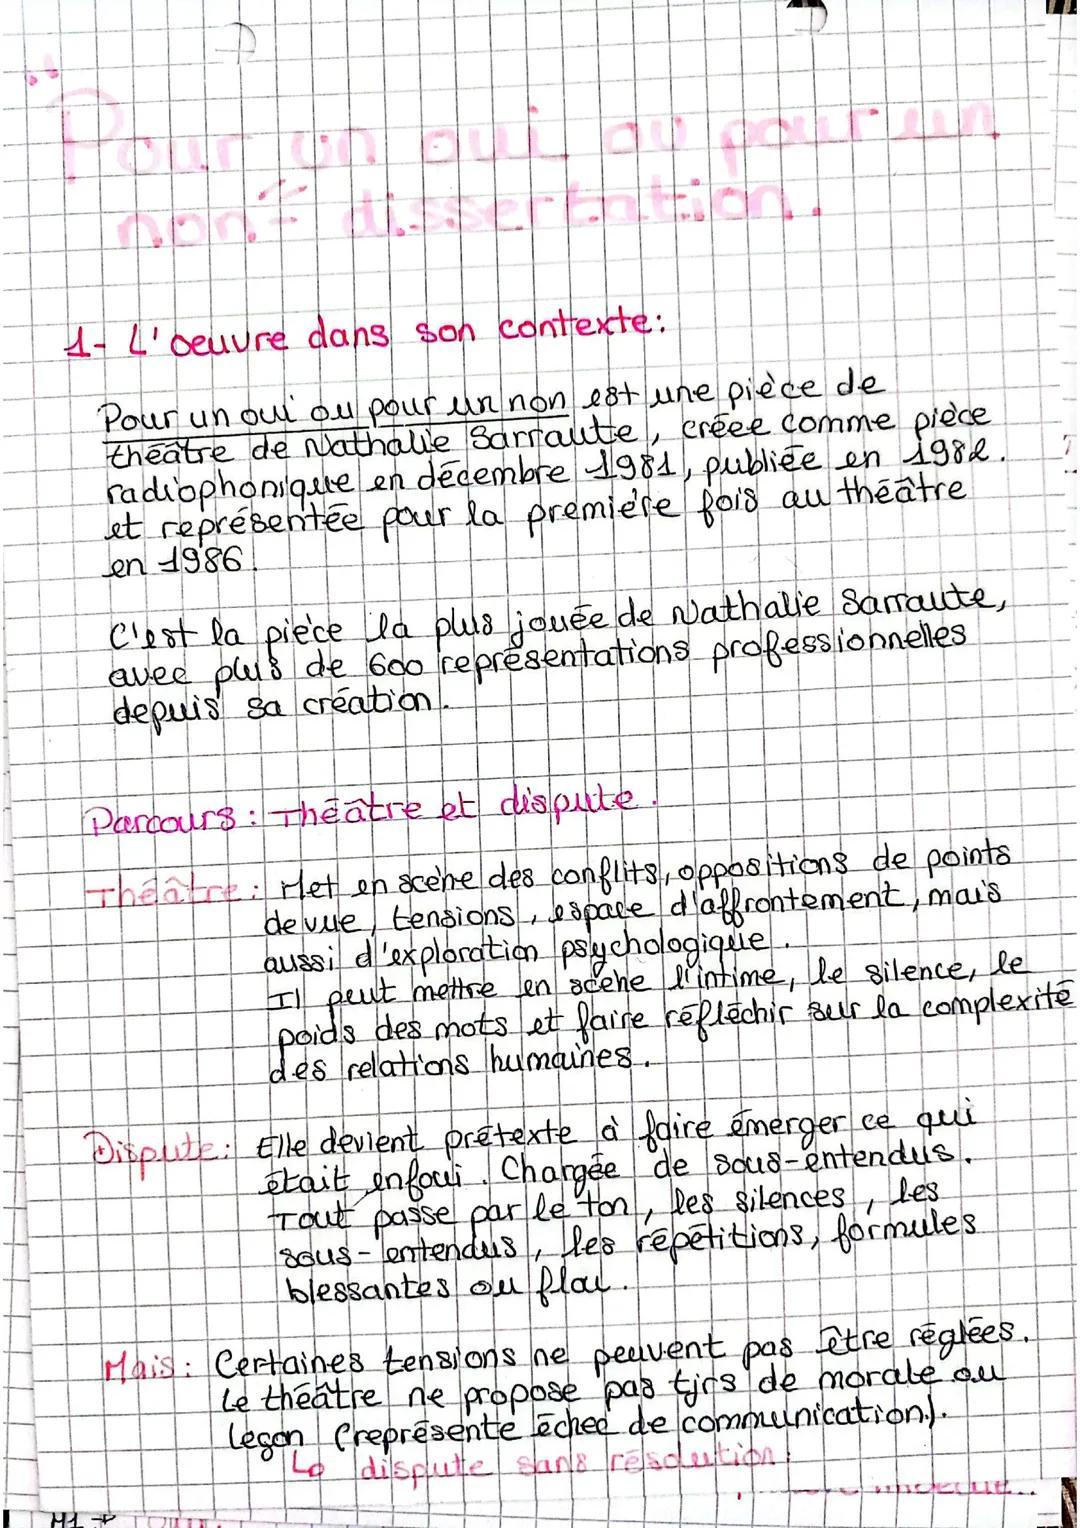 "Pour un oui ou pour un
non" dissertation.
1- L'oeuvre dans son contexte:
Pour un oui ou pour un non est une pièce de
théâtre de Nathalie Sarraute, créée comme pièce
radiophonique en décembre 1981, publiée en 1982.
et représentée pour la première fois au théâtre
en 1986.
C'est la pièce la plus jouée de Nathalie Sarraute,
avec plus de 600 représentations professionnelles
depuis sa création.
Parcours: Théâtre et dispute.
Théâtre: Met en scène des conflits, oppositions de points
de vue, tensions, espace d'affrontement, mais
aussi d'exploration psychologique.
Il peut mettre en scène l'intime, le silence, le
poids des mots et faire réfléchir sur la complexité
des relations humaines.
Dispute: Elle devient prétexte à faire émerger ce qui
était enfoui. Chargée de sous-entendus.
Tout passe par le ton, les silences, les
sous-entendus, les répétitions, formules
blessantes ou flou.
Mais: Certaines tensions ne peuvent pas être réglées.
Le théâtre ne propose pas tjrs de morale ou
leçon (représente échec de communication).
↳ dispute sans résolution.